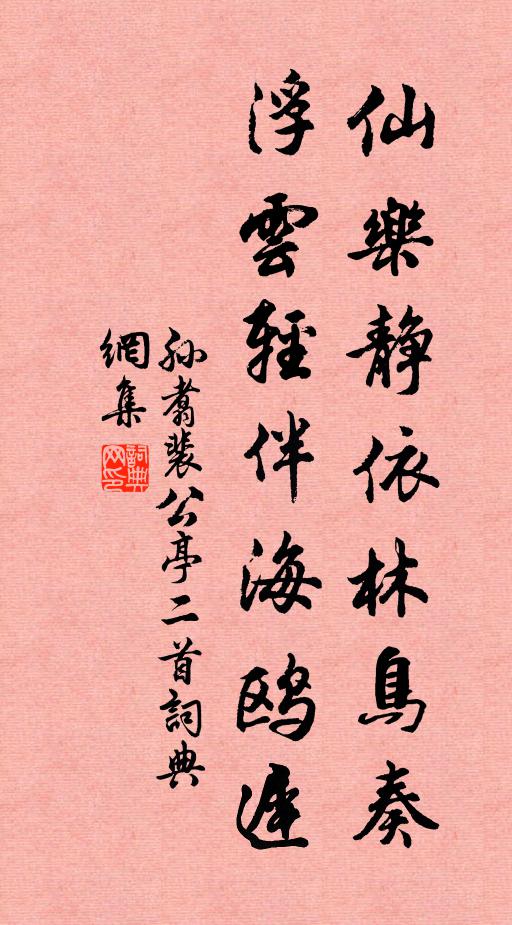 仙樂靜依林鳥奏
浮雲輕伴海鷗遲
孙翥裴公亭二首詞典
網集
詞典網印